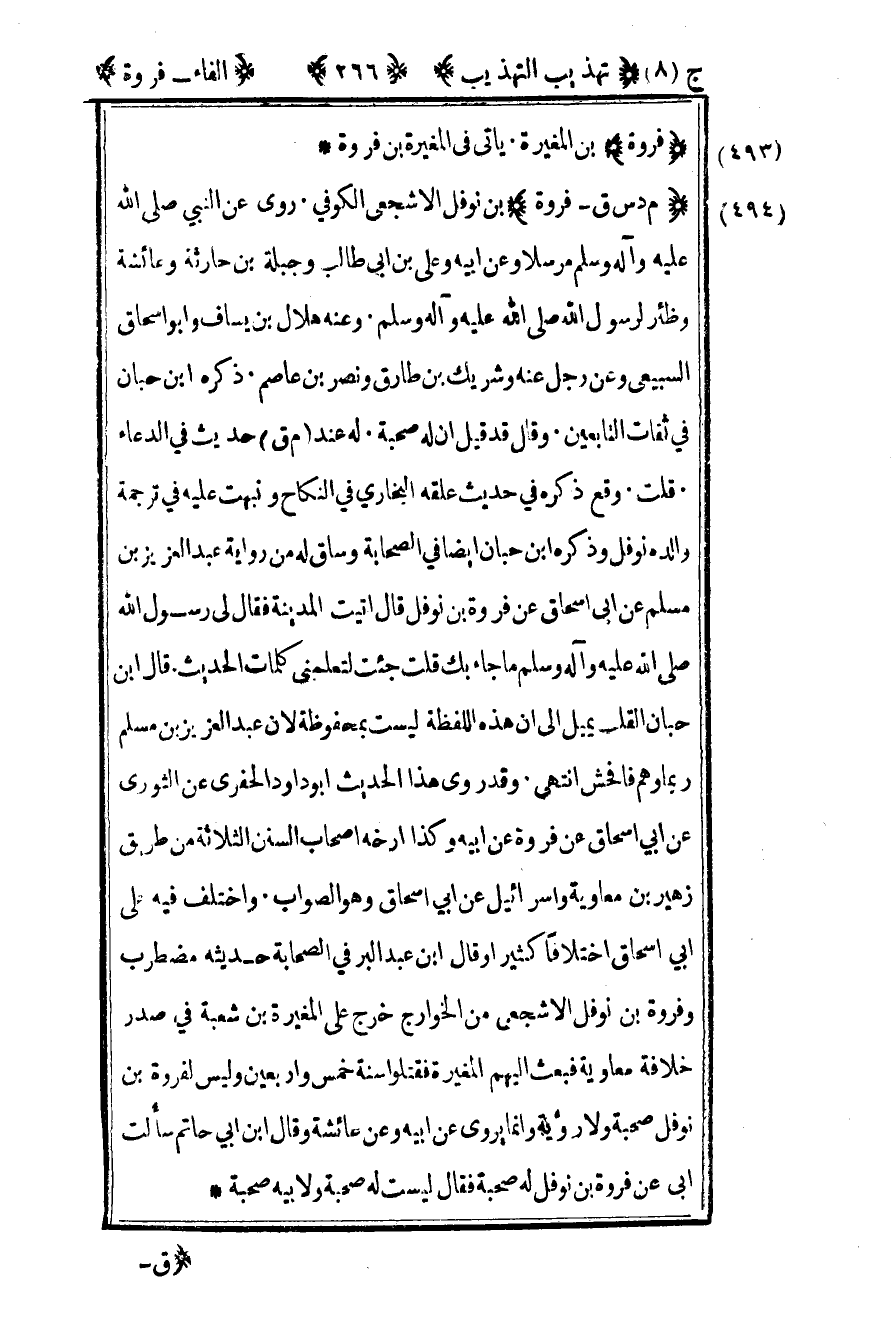 ج (٨) ﴿ تهذيب التهذيب ﴾ ﴿ ٢٦٦ ﴾ ﴿ الفاء ــ فروة ﴾
(٤٩٣) ﴿ فروة ﴾ بن المغيرة · ياتى فى المغيرة بن فروة *
(٤٩٤) ﴿ م د س ق ــ فروة ﴾ بن نوفل الاشجعى الكوفي · روى عن النبي صلى الله
عليه وآله وسلم مرسلا وعن ابيه وعلى بن ابى طالب وجبلة بن حارثة وعائشة
وظئر لرسول الله صلى الله عليه وآله وسلم · وعنه هلال بن يساف وابو اسحاق
السبيعى وعن رجل عنه وشريك بن طارق ونصر بن عاصم · ذكره ابن حبان
في ثقات التابعين · وقال قد قيل ان له صحبة · له عند (م ق) حديث في الدعاء
· قلت · وقع ذكره في حديث علقه البخاري في النكاح ونبهت عليه في ترجمة
والده نوفل وذكره ابن حبان ايضا في الصحابة وساق له من رواية عبد العزيز بن
مسلم عن ابى اسحاق عن فروة بن نوفل قال اتيت المدينة فقال لى رســول الله
صلى الله عليه وآله وسلم ما جاء بك قلت جئت لتعلمنى كلمات الحديث . قال ابن
حبان القلب يميل الى ان هذه اللفظة ليست بمحفوظة لان عبد العزيز بن مسلم
ربما وهم فافحش انتهى · وقد روى هذا الحديث ابو داود الحفرى عن الثورى
عن ابي اسحاق عن فروة عن ابيه وكذا ارخه اصحاب السنن الثلاثة من طريق
زهير بن معاوية واسرائيل عن ابي اسحاق وهو الصواب · واختلف فيه على
ابي اسحاق اختلافاً كثيرا وقال ابن عبد البر في الصحابة حـديثه مضطرب
وفروة بن نوفل الاشجعى من الخوارج خرج على المغيرة بن شعبة في صدر
خلافة معاوية فبعث اليهم المغيرة فقتلوا سنة خمس واربعين وليس لفروة بن
نوفل صحبة ولا رؤية وانما يروى عن ابيه وعن عائشة وقال ابن ابي حاتم سألت
ابى عن فروة بن نوفل له صحبة فقال ليست له صحبة ولابيه صحبة *
﴿ ق ــ